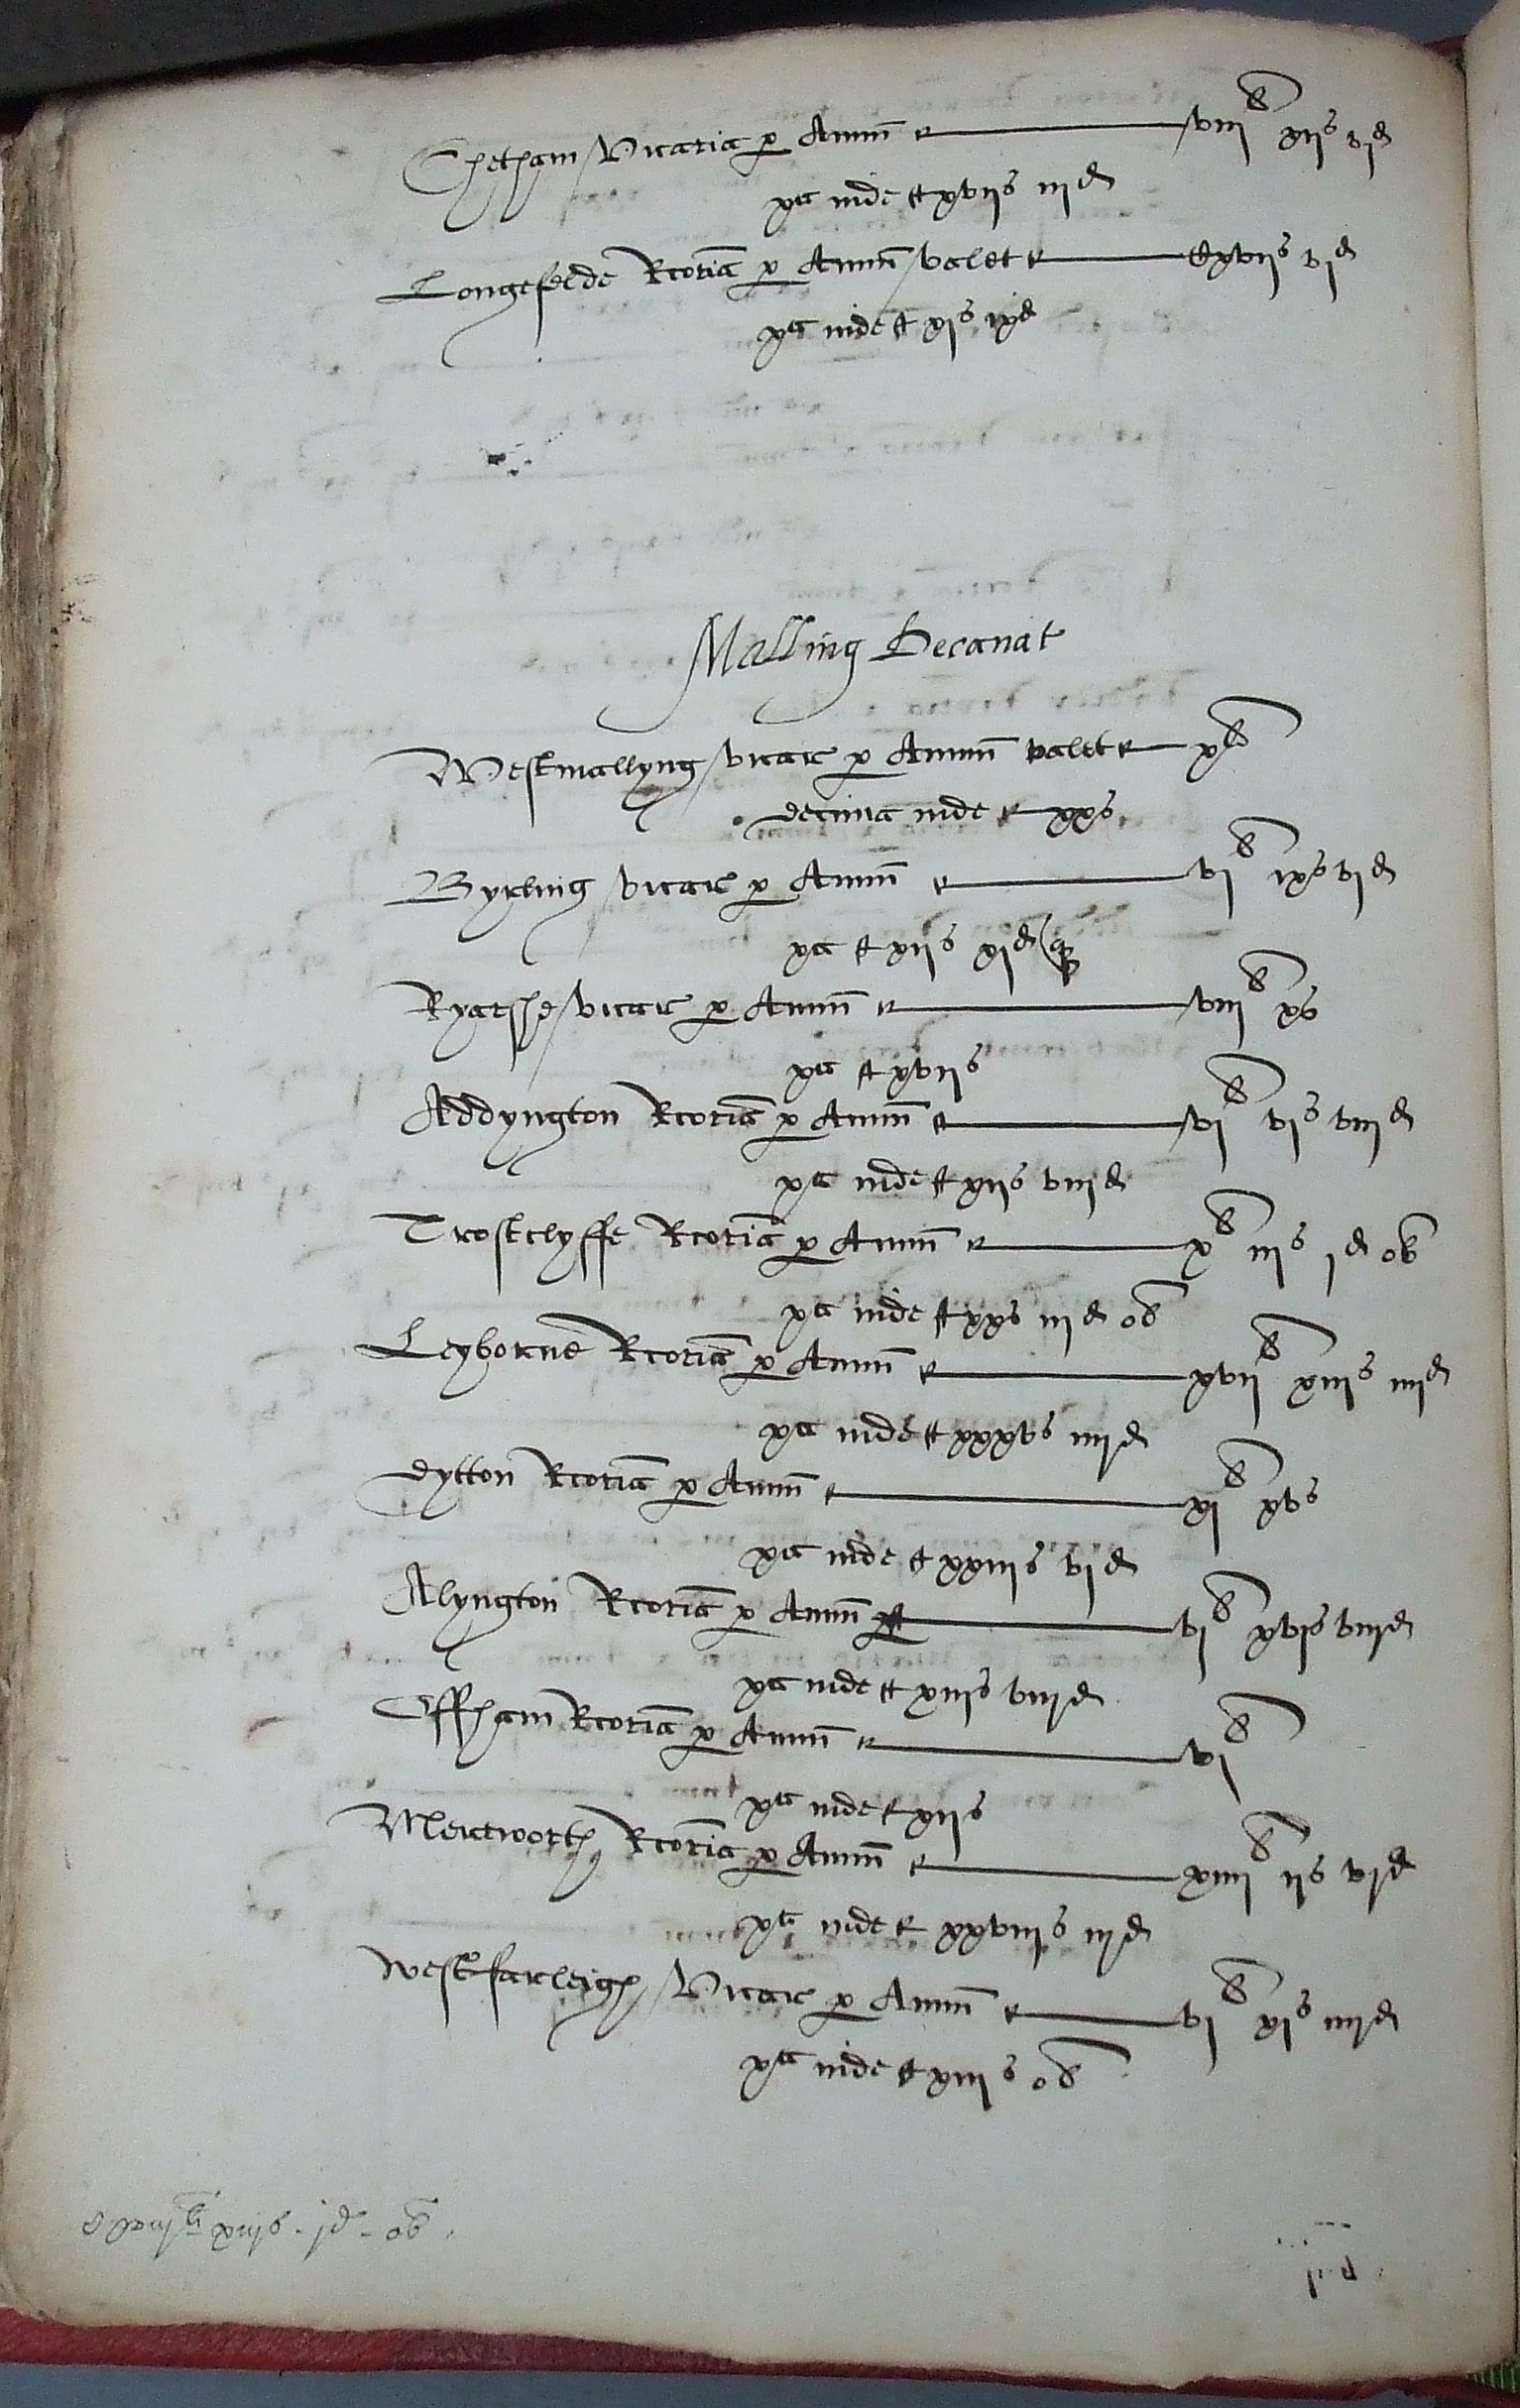 Chetham Vicaria p Annu viij li xiis vj d
xa inde xvijs iij d
Longefelde Rcoria p Annu valet cxvijs vj d
xa inde xjs ixd
Malling Decanat
Westmallyng vicar p Annu valet x li
decima inde xxs
Byrling vicar p Annu vj li ixs vj d
xa xijs xjd q
Ryarshe vicar p Annu viij li xs
xa xvijs
Addyngton Rcoria p Annu vj li vjs viij d
xa inde xijs viij d
Trostclyffe Rcoria p Annu x li iijs j d ob
xa inde xxs iij d ob
Leyborne Rcoria p Annu xvij li xiijs iiij d
xa inde xxxvs iiij d
Dytton Rcoria p Annu xj li xvs
xa inde xxiijs vj d
Alyngton Rcoria p Annu vj li xvjs viij d
xa inde xiijs viij d
Offham Rcoria p Annu vj li
xa inde xijs
Mereworth Rcoria p Annu xiiij li ijs vj d
xa inde xxviijs iij d
Westfarleigh Vicar p Annu vj li xjs iiij d
xa inde xiijs ob
xiijs - jd - ob